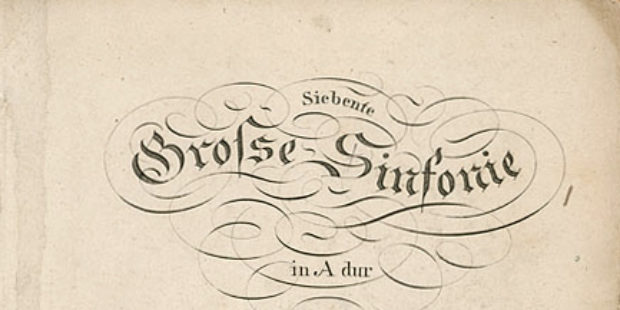 Siebente
Groſse Sinfonie
in A dur